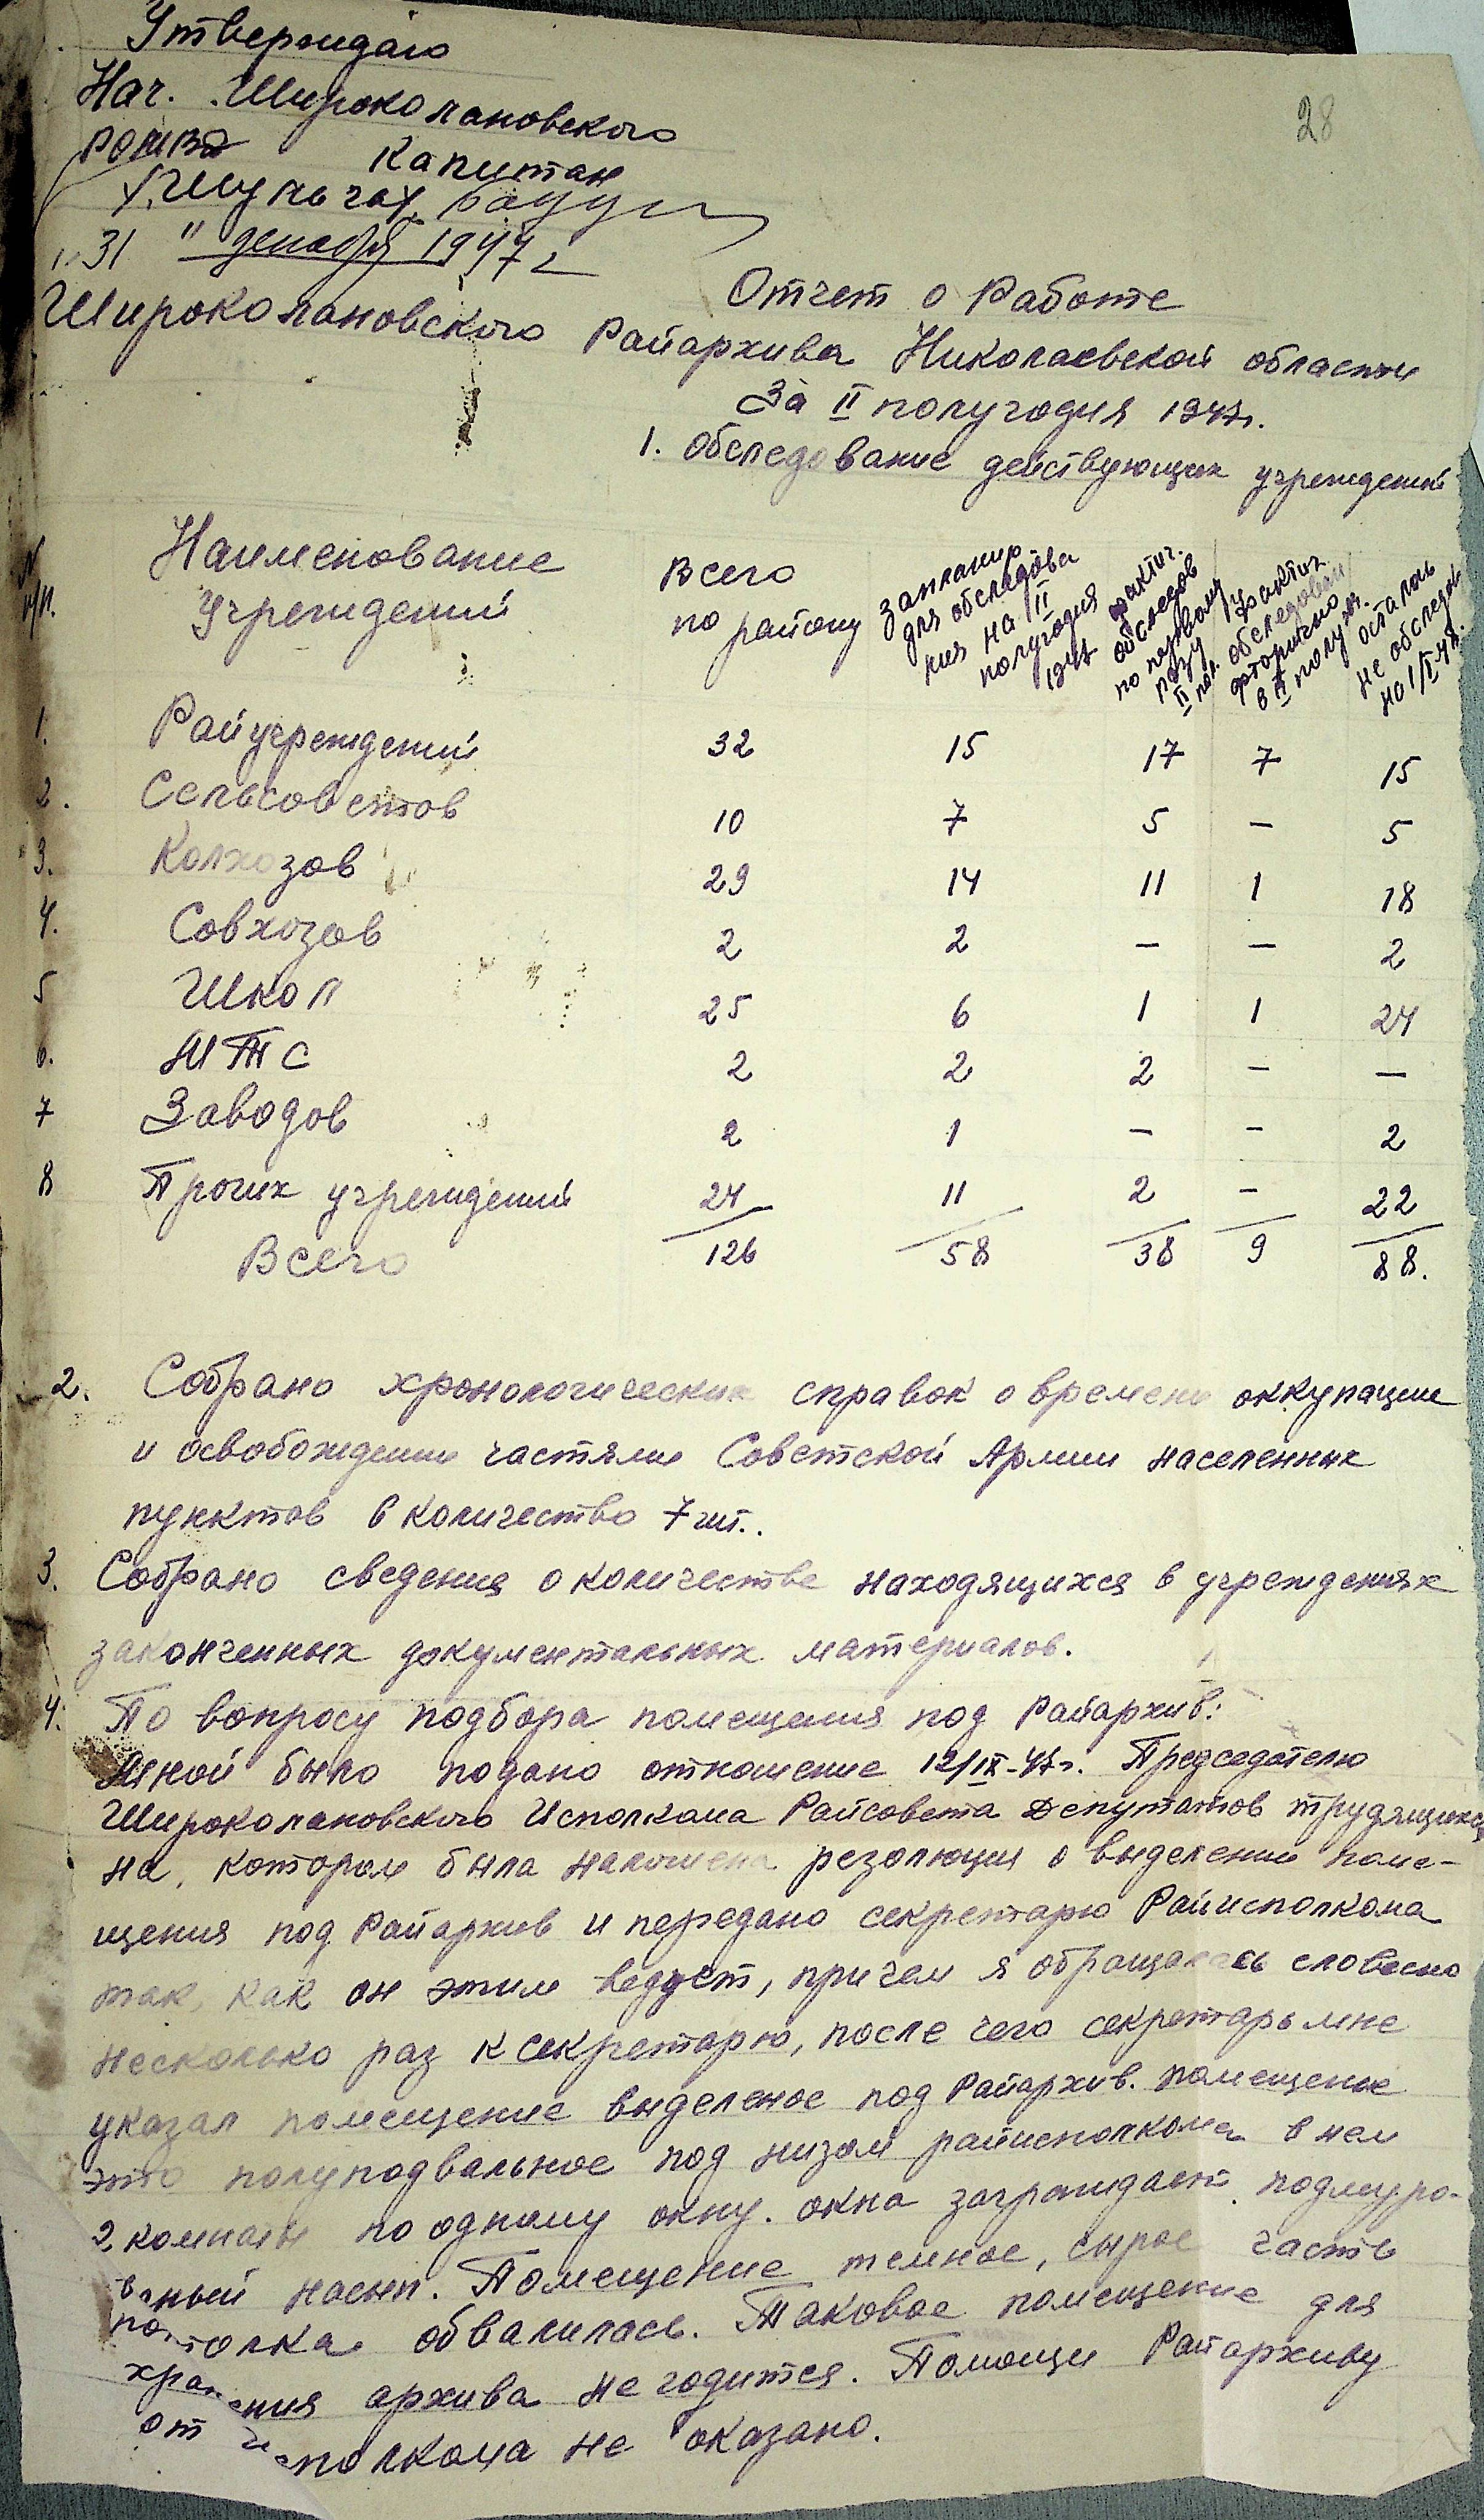 Утверждаю
28
Нач. Широколановского
РОМВД Капитан
"31" декабря 1947 г
Отчет о Работе
Широколановского Райархива Николаевской области
За II полугодия 1947г.
1. Обследование действующих учреждений
N п/п. Наименование Учреждений Всего по району запланир для обследова ния на II полугодия 1947 фактич. обследов по первому разу II пол. фактич обследован вторично в II полуг. осталось не обследов на 1/I 48.
1. Райучреждений 32 15 17 7 15
2. Сельсоветов 10 7 5 — 5
3. Колхозов 29 14 11 1 18
4. Совхозов 2 2 — — 2
5 Школ 25 6 1 1 24
6. МТС 2 2 2 — —
7 Заводов 2 1 — — 2
8 Прочих учреждений 24 11 2 — 22
Всего 126 58 38 9 88.
2. Собрано хронологических справок о времени оккупации
и освобождении частями Советской Армии населенных
пунктов в количество 7 шт..
3. Собрано сведения о количестве находящихся в учреждениях
законченных документальных материалов.
4. По вопросу подбора помещения под Райархив:
Мной было подано отношение 12/IX-47г. Председателю
Широколановского Исполкома Райсовета Депутатов трудящихся
на, котором была наложена резолюция о выделении поме-
щения под Райархив и передано секретарю Райисполкома
так, как он этим ведует, причем я обращалась словесно
несколько раз к секретарю, после чего секретарь мне
указал помещение выделеное под Райархив. помещение
это полуподвальное под низом райисполкома в нем
2 комнаты по одному окну. окна заграждает подмуро-
ваный насып. Помещение темное, сырое часть
потолка обвалилась. Таковое помещение для
хранения архива не годится. Помощи Райархиву
от исполкома не оказано.